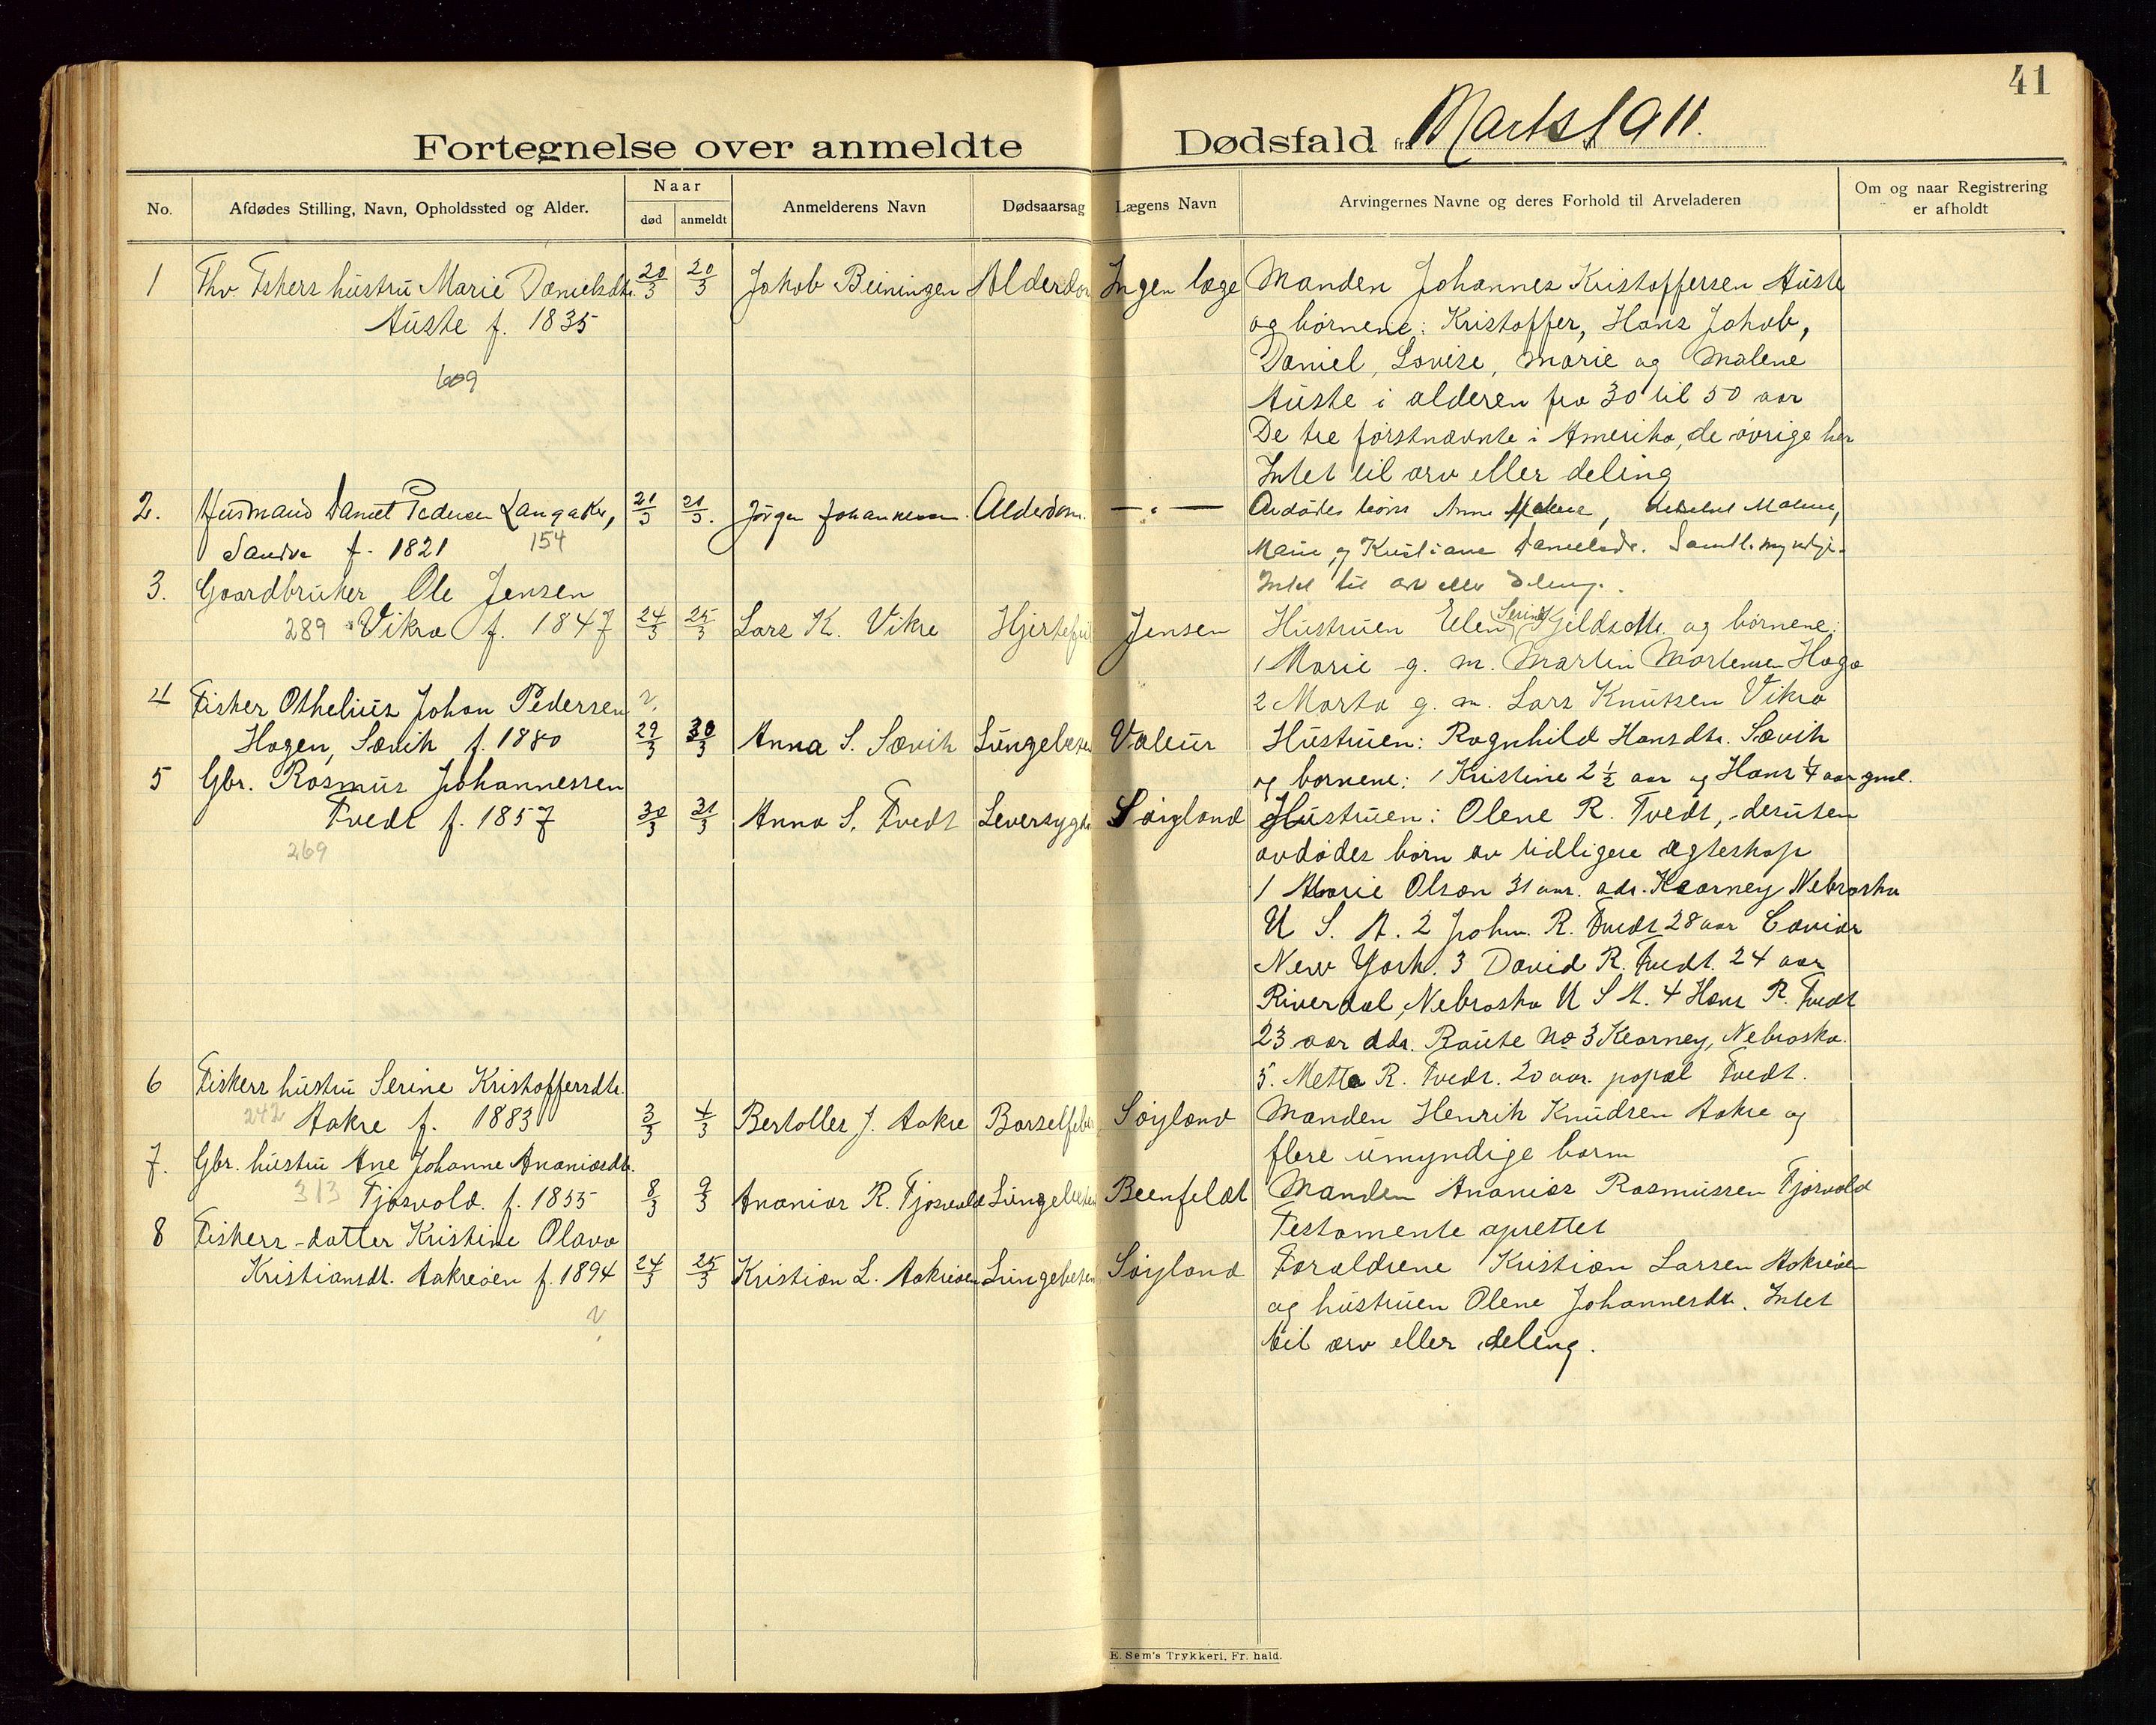 41
Fortegnelse over anmeldte Dødsfald fra Marts 1911.
No. Afdødes Stilling, Navn, Opholdssted og Alder. Naar død anmeldt Anmelderens Navn Dødsaarsag Lægens Navn Arvingernes Navne og deres Forhold til Arveladeren Om og naar Registrering er afholdt
1 Fhv. Fskers hustru Marie Danielsdtr. 20/3 20/3 Jakob Beiningen Alderdom Ingen læge Manden Johannes Kristoffersen Auste
Auste f. 1835 og børnene: Kristoffer, Hans Jakob,
609 Daniel, Lovise, Marie og Malene
Auste i alderen fra 30 til 50 aar
De tre førstnævnte i Amerika, de øvrige her
Intet til arv eller deling
2. Husmand Daniel Pedersen Langaker, 21/3 21/3. Jørgen Johannessen. Alderdom. — " — Avdødes børn Anne Malene, Malene,
Sandve f. 1821 154 Marie og Kristiane Danielsdr. Samtl. myndige.
3. Gaardbruker Ole Jensen Intet til arv eller deling.
289 Vikra f. 1847 24/3 25/3 Lars K. Vikre Hjertefeil Jensen Hustruen Elen Serine Kjeldsdtr. og børnene:
1 Marie g. m. Martin Mortensen Haga
4 Fisker Othelius Johan Pedersen v. 2 Marta g. m. Lars Knutsen Vikra
Hagen, Sævik f. 1880 29/3 30/3 Anna S. Sævik Lungebeten Valeur Hustruen: Ragnhild Hansdtr. Sævik
5 Gbr. Rasmus Johannessen og børnene: 1 Kristine 2 1/2 aar og Hans 1/4 aar gml.
Tvedt f. 1857 30/3 31/3 Anna S. Tvedt Leversygd Søyland Hustruen: Olene R. Tvedt, desuten
269 avdødes børn av tidligere ægteskap
1 Marie Olson 31 aar. adr. Kearney Nebraska
U S. A. 2 John. R. Tvedt 28 aar Caviar
New York. 3 David R. Tvedt. 24 aar
Riverdal, Nebraska U S A. 4 Hans R. Tvedt
23 aar adr. Raute No 3 Kearney, Nebraska.
5. Metta R. Tvedt. 20 aar. popal Tvedt.
6 Fiskers hustru Serine Kristoffersdtr.
242 Aakre f. 1883 3/3 4/3 Bertolles J. Aakre Barselfeber Søyland Manden Henrik Knudsen Aakre og
flere umyndige barn
7. Gbr. hustru Ane Johanne Ananiasdtr.
313 Tjøsvold. f. 1855 8/3 9/3 Ananias R. Tjøsvold Lungebeten Beenfeldt Manden Ananias Rasmussen Tjøsvold
Testamente oprettet
8 Fiskers-datter Kristine Olava
Kristiansdt. Aakreøen f. 1894 24/3 25/3 Kristian L. Aakreøen Lungebeten Søyland Forældrene Kristian Larsen Aakreøen
v. og hustruen Olene Johannesdtr. Intet
til arv eller deling.
E. Sem's Trykkeri, Fr. hald.